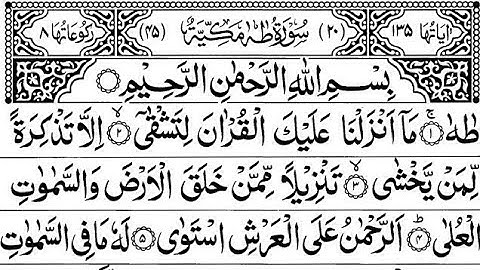 اٰیَاتُهَا ۱۳۵ (۲۰) سُوْرَةُ طٰهٰ مَكِّیَّةٌ (۴۵) رُكُوْعَاتُهَا ۸
بِسْمِ اللّٰهِ الرَّحْمٰنِ الرَّحِیْمِ
طٰهٰ ۚ‏﴿۱﴾ مَاۤ اَنْزَلْنَا عَلَیْكَ الْقُرْاٰنَ لِتَشْقٰۤى ۙ‏﴿۲﴾ اِلَّا تَذْكِرَةً
لِّمَنْ یَّخْشٰى ۙ‏﴿۳﴾ تَنْزِیْلًا مِّمَّنْ خَلَقَ الْاَرْضَ وَالسَّمٰوٰتِ
الْعُلٰى ؕ‏﴿۴﴾ اَلرَّحْمٰنُ عَلَى الْعَرْشِ اسْتَوٰى ﴿۵﴾ لَهٗ مَا فِی السَّمٰوٰتِ